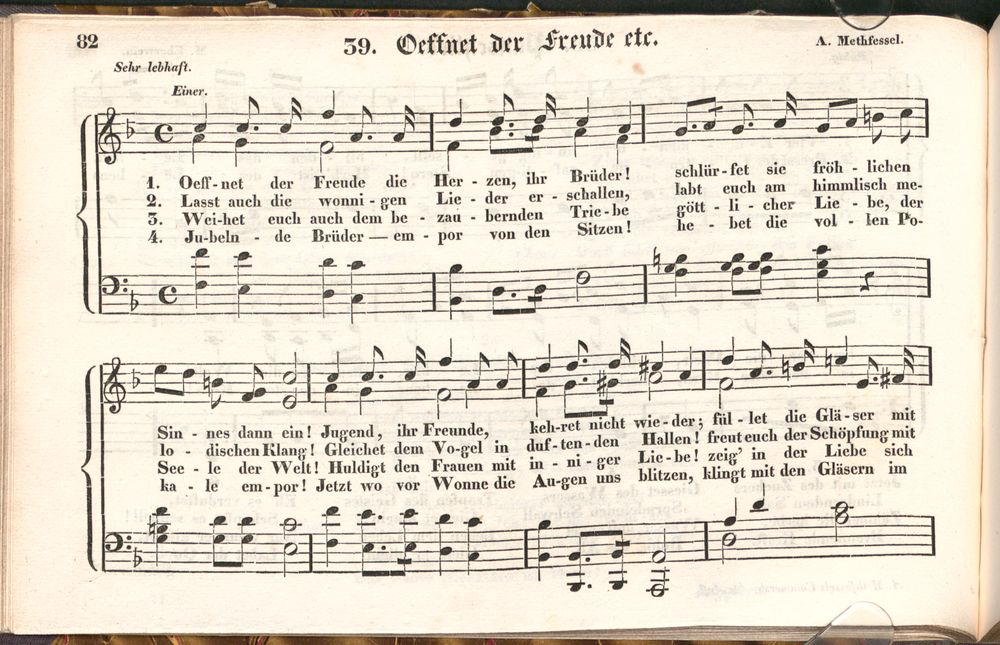 82
39. Oeffnet der Freude etc.
A. Methfessel.
Sehr lebhaft.
Einer.
1. Oeff-net der Freude die Her-zen, ihr Brüder! schlür-fet sie fröh-lichen
2. Lasst auch die wonni-gen Lie-der er-schallen, labt euch am himmlisch me-
3. Wei-het euch auch dem be-zau-bernden Trie-be gött-li-cher Lie-be, der
4. Ju-beln-de Brüder — em-por von den Sitzen! he-bet die vol-len Po-
Sin-nes dann ein! Jugend, ihr Freunde, keh-ret nicht wie-der; fül-let die Glä-ser mit
lo-dischen Klang! Gleichet dem Vo-gel in duf-ten-den Hallen! freut euch der Schöpfung mit
See-le der Welt! Huldigt den Frauen mit in-ni-ger Lie-be! zeig' in der Liebe sich
ka-le em-por! Jetzt wo vor Wonne die Au-gen uns blitzen, klingt mit den Gläsern im